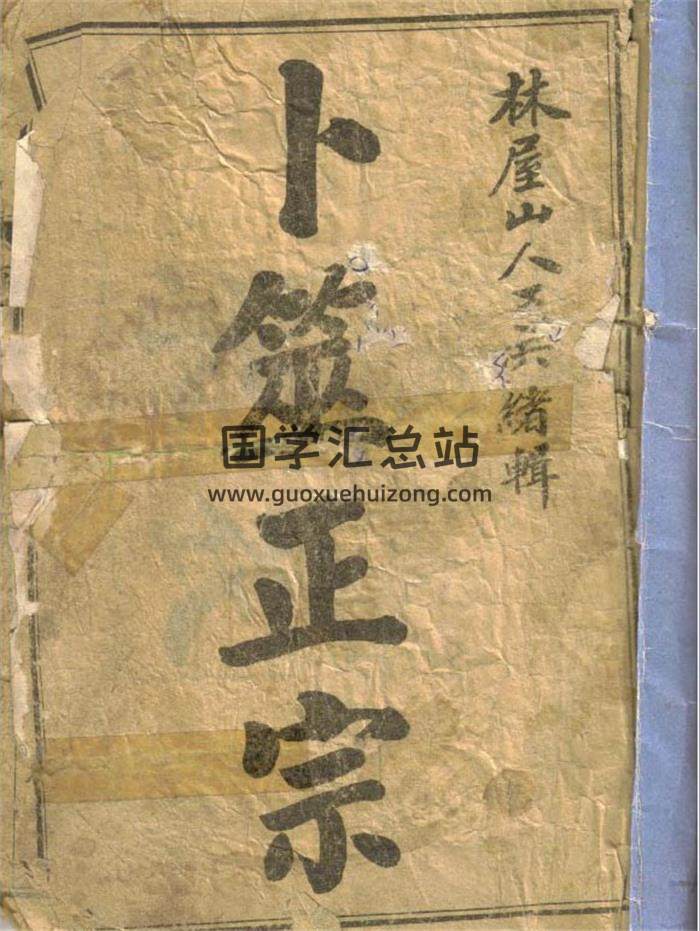 林屋山人王洪緒輯
卜筮正宗
国学汇总站
www.guoxuehuizong.com